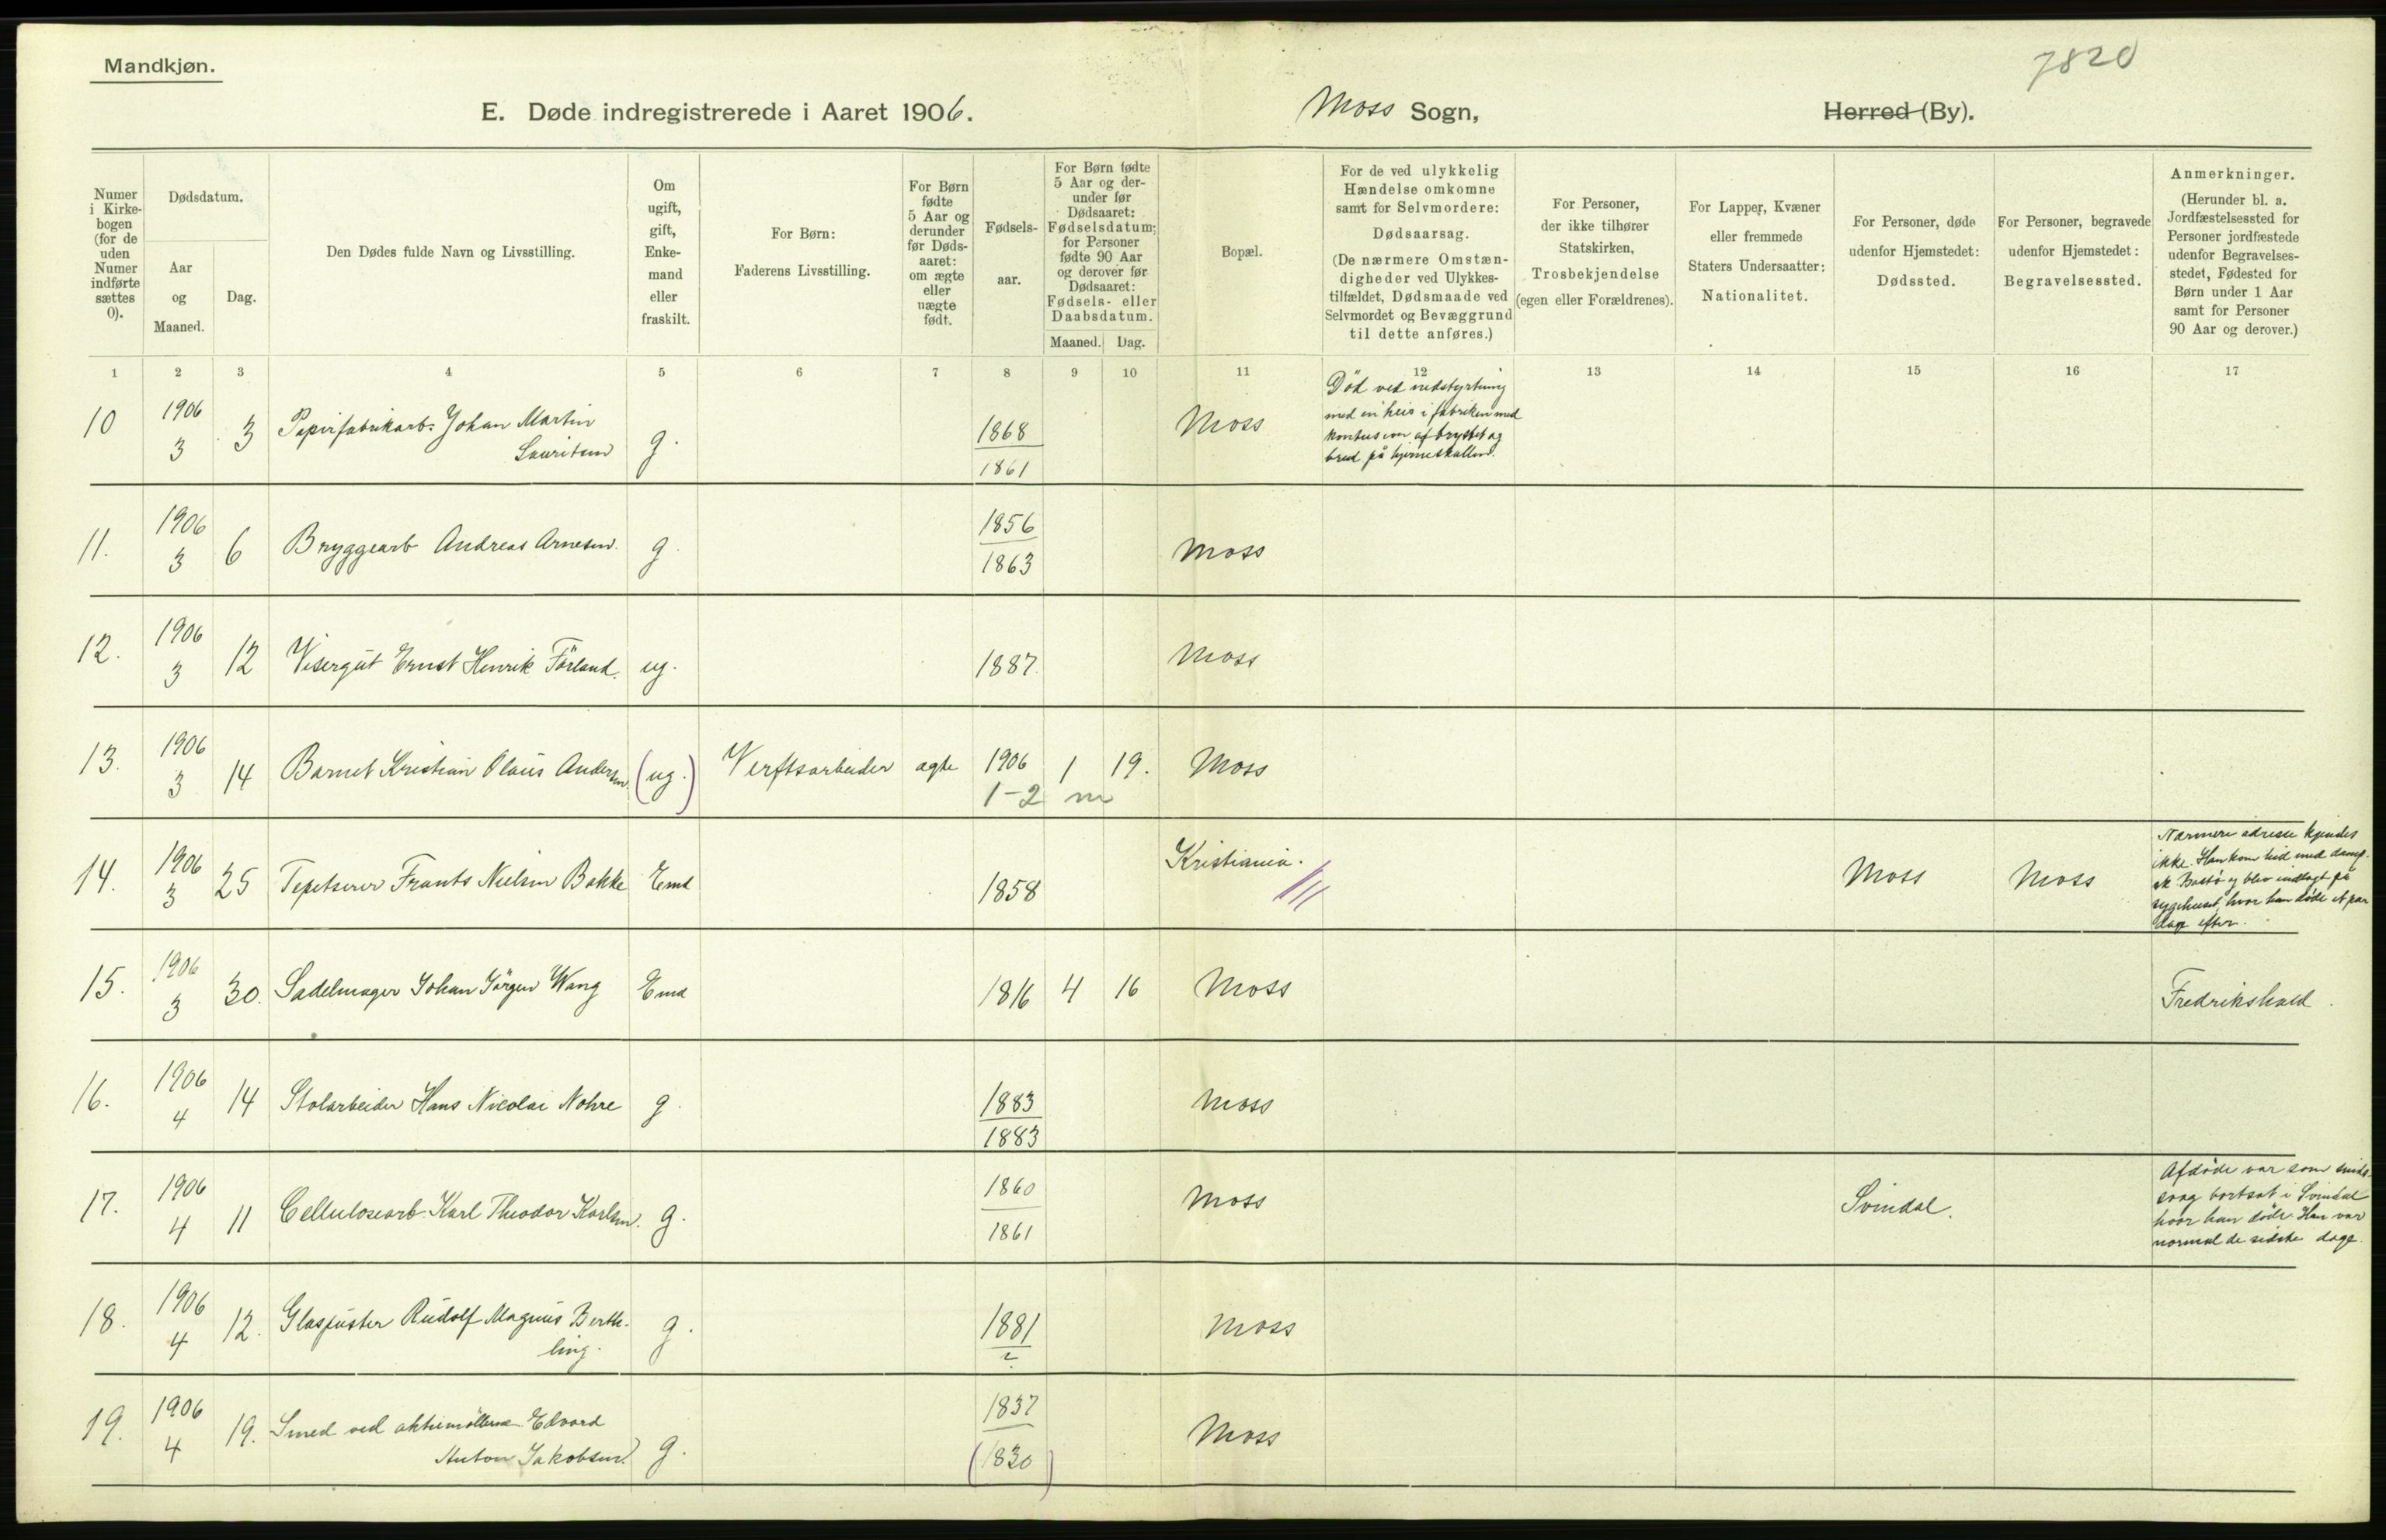 Mandkjøn.
7820
E. Døde indregistrerede i Aaret 1906.
Moss Sogn,
Herred (By).
Numer i Kirkebogen (for de uden Numer indførte sættes 0).
Dødsdatum.
Aar og Maaned.
Dag.
Den Dødes fulde Navn og Livsstilling.
Om ugift, gift, Enkemand eller fraskilt.
For Børn:
Faderens Livsstilling.
For Børn fødte 5 Aar og derunder før Dødsaaret: om ægte eller uægte født.
Fødselsaar.
For Børn fødte 5 Aar og derunder før Dødsaaret: Fødselsdatum; for Personer fødte 90 Aar og derover før Dødsaaret: Fødsels- eller Daabsdatum.
Maaned. Dag.
Bopæl.
For de ved ulykkelig Hændelse omkomne samt for Selvmordere: Dødsaarsag.
(De nærmere Omstændigheder ved Ulykkestilfældet, Dødsmaade ved Selvmordet og Bevæggrund til dette anføres.)
For Personer, der ikke tilhører Statskirken, Trosbekjendelse (egen eller Forældrenes).
For Lapper, Kvæner eller fremmede Staters Undersaatter: Nationalitet.
For Personer, døde udenfor Hjemstedet: Dødssted.
For Personer, begravede udenfor Hjemstedet: Begravelsessted.
Anmerkninger.
(Herunder bl. a. Jordfæstelsessted for Personer jordfæstede udenfor Begravelsesstedet, Fødested for Børn under 1 Aar samt for Personer 90 Aar og derover.)
1 2 3 4 5 6 7 8 9 10 11 12 13 14 15 16 17
10 1906 3 3 Papirfabrikarb. Johan Martin Lauritsen g. 1868 1861 Moss
Död ved nedstyrtning
med en heis i fabriken med
kontusion af brystet og
brud på hjerneskallen.
11. 1906 3 6 Bryggearb Andreas Arnesen. g. 1856 1863 Moss
12. 1906 3 12 Visergut Ernst Henrik Förland. ug. 1887. Moss
13. 1906 3 14 Barnet Kristian Olaus Andersen (ug.) Verftsarbeider ægte 1906 1 19. Moss
1-2 m
14. 1906 3 25 Tepetserer Frants Nielsen Bakke Emd 1858 Kristiania. Moss Moss
Nærmere adresse kjendes
ikke. Han kom hid med damp-
sk Bastö og blev indlagt på
sygehuset, hvor han døde et par
dage efter.
15. 1906 3 30. Sadelmager Johan Jörgen Wang Emd 1816 4 16 Moss Fredrikshald.
16. 1906 4 14 Stolarbeider Hans Nicolai Nohre g. 1883 1883 Moss
17. 1906 4 11 Cellulosearb. Karl Theodor Karlsen. g. 1860 1861 Moss Svindal.
Afdöde var som sinds-
svag bortsat i Svindal
hvor han døde. Han var
normal de sidste dage.
18. 1906 4 12. Glaspuster Rudolf Magnus Berthling. g. 1881 ? Moss
19. 1906 4 19. Smed ved aktiemöllerne Edvard Anton Jakobsen. g. 1837 (1830) Moss